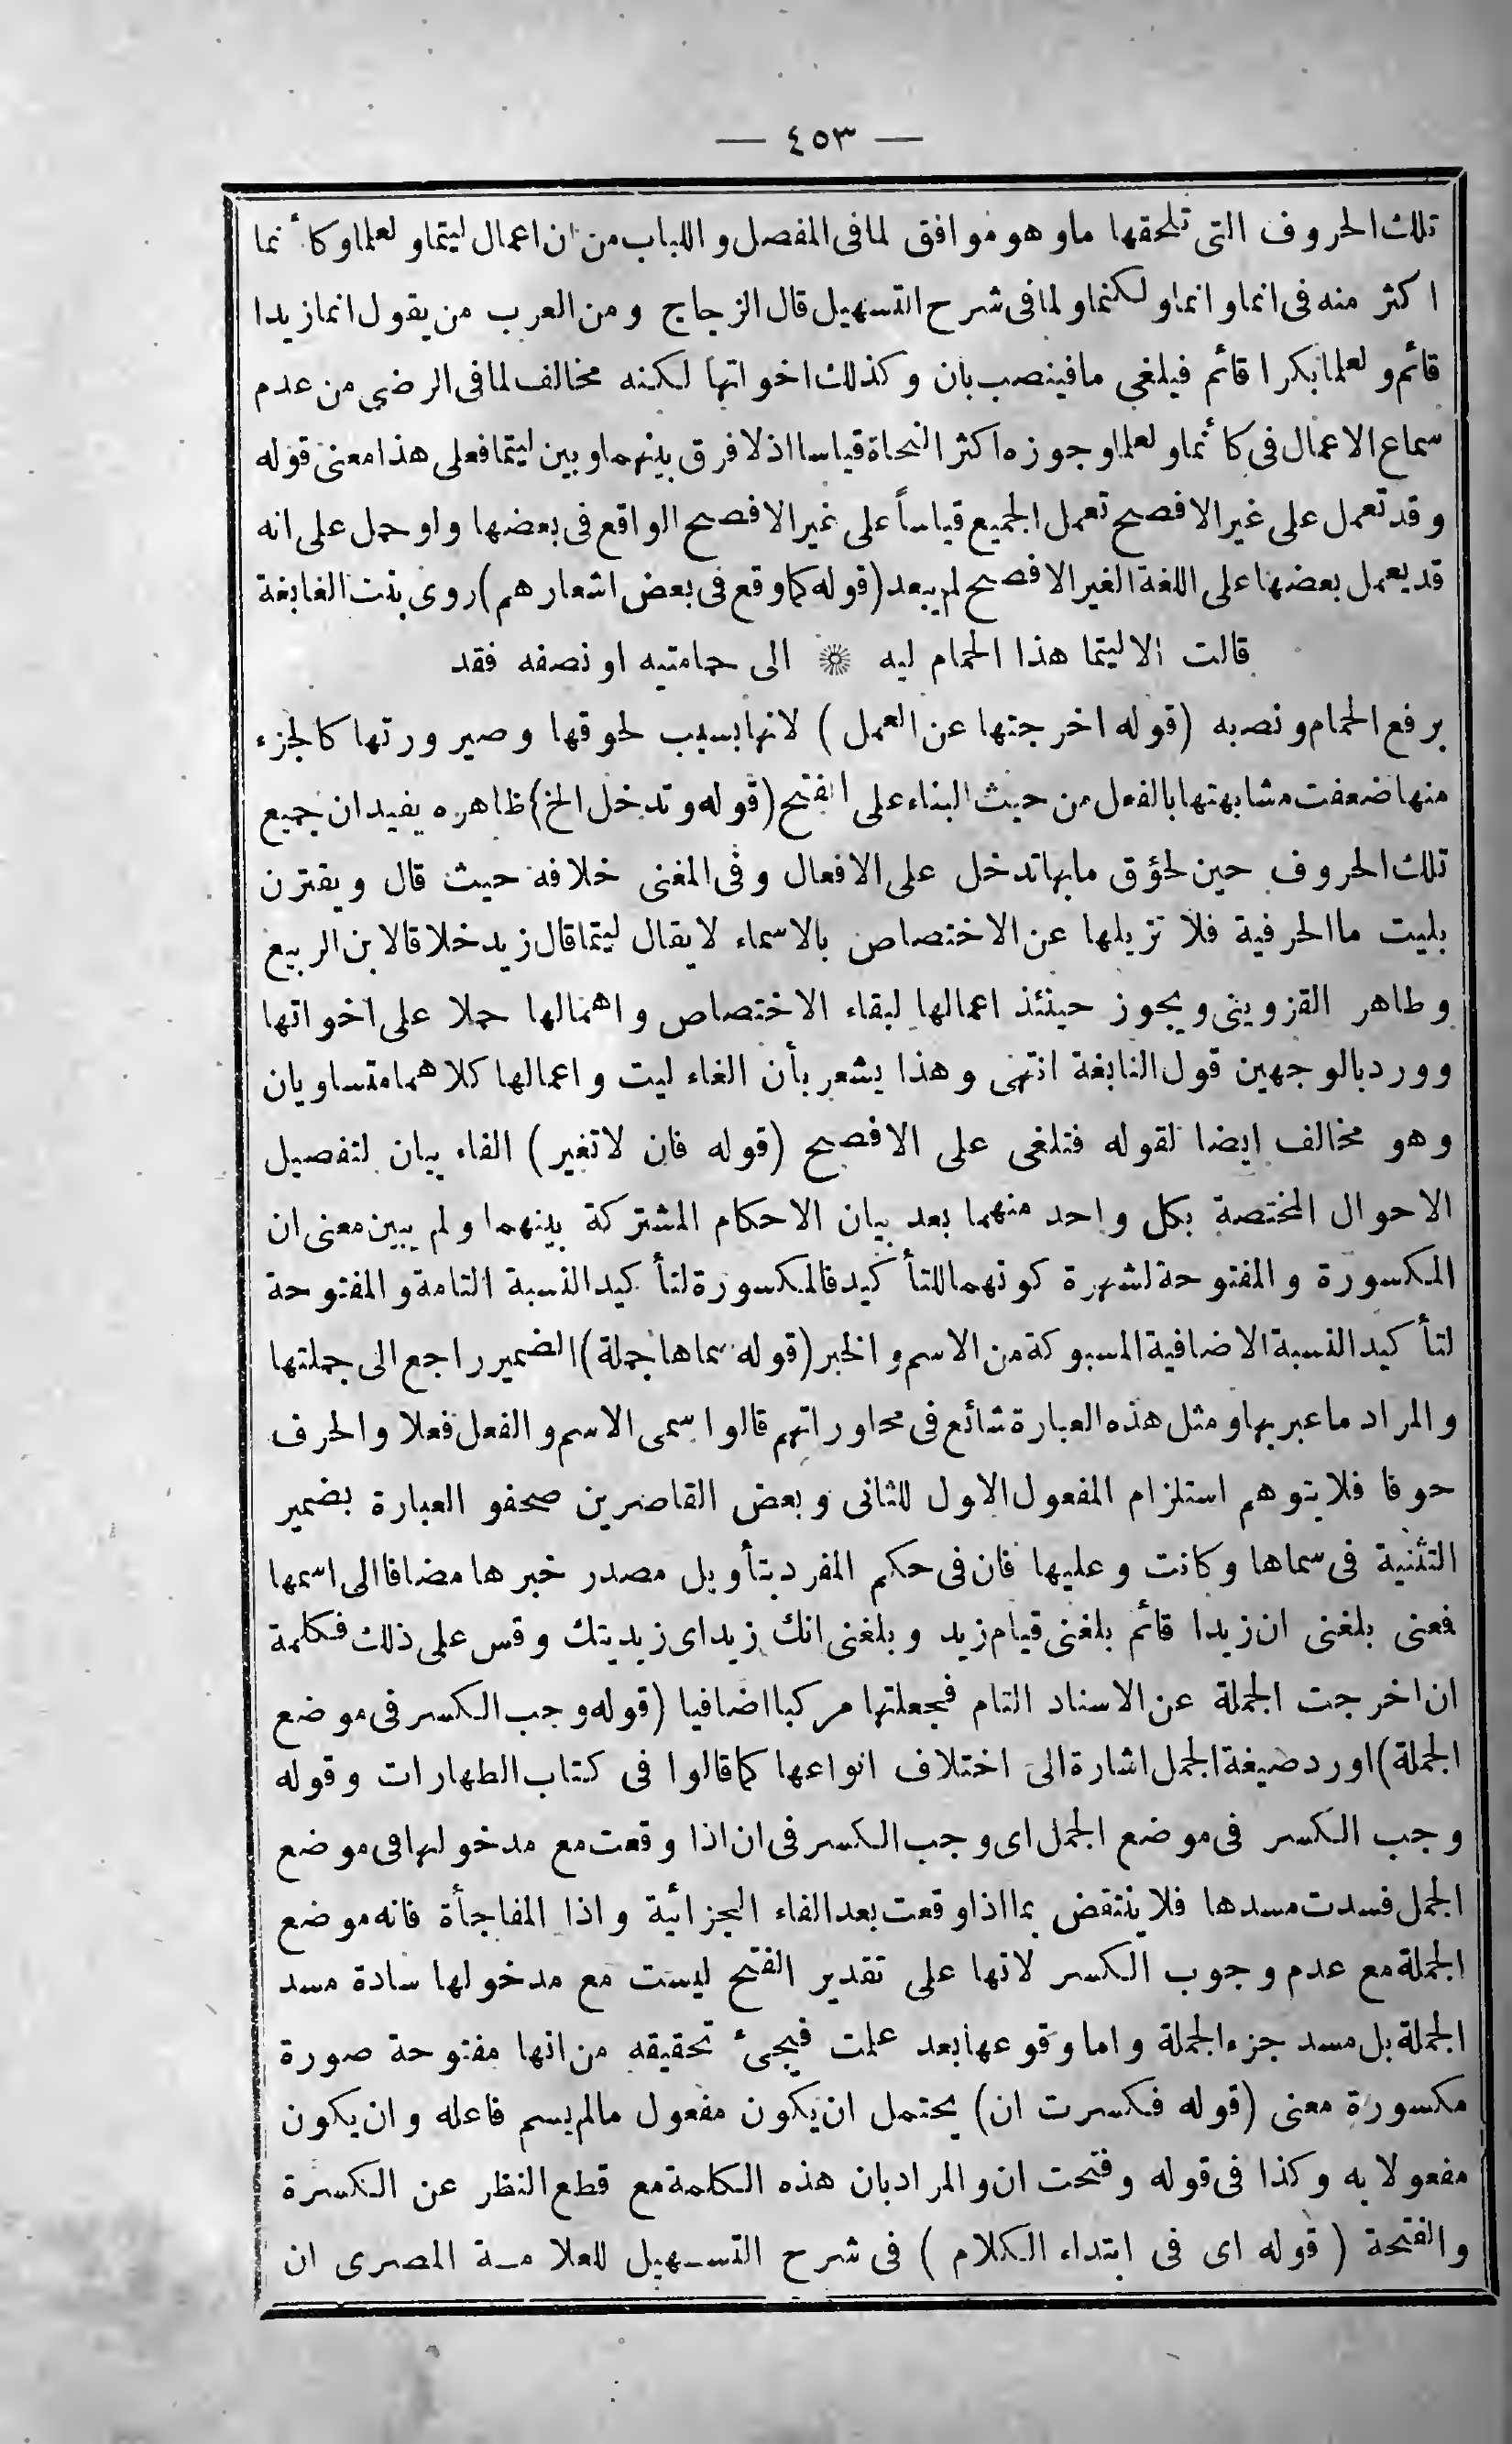 — ٤٥٣ —
تلك الحروف التى تلحقها ما وهو موافق لما فى المفصل واللباب من ان اعمال ليتما ولعلما وكأنما
اكثر منه فى انما وانما ولكنما ولما فى شرح التسهيل قال الزجاج ومن العرب من يقول انما زيدا
قائم ولعلما بكرا قائم فيلغى ما فينصب بان وكذلك اخواتها لكنه مخالف لما فى الرضى من عدم
سماع الاعمال فى كأنما ولعلما وجوزه اكثر النحاة قياسا اذ لا فرق بينهما وبين ليتما فعلى هذا معنى قوله
وقد تعمل على غير الافصح تعمل الجميع قياساً على غير الافصح الواقع فى بعضها ولو حمل على انه
قد يعمل بعضها على اللغة الغير الافصح لم يبعد (قوله كما وقع فى بعض اشعارهم) روى بيت الغابغة
قالت الا ليتما هذا الحمام ليه ۞ الى حمامتيه او نصفه فقد
برفع الحمام ونصبه (قوله اخرجتها عن العمل ) لانها بسبب لحوقها وصيرورتها كالجزء
منها ضعفت مشابهتها بالفعل من حيث البناء على الفتح (قوله وتدخل الخ) ظاهره يفيد ان جميع
تلك الحروف حين لحوق ما بها تدخل على الافعال وفى المغنى خلافه حيث قال ويقترن
بليت ما الحرفية فلا تزيلها عن الاختصاص بالاسماء لا يقال ليتما قال زيد خلافا لابن الربيع
وطاهر القزوينى ويجوز حينئذ اعمالها لبقاء الاختصاص واهمالها حملا على اخواتها
وورد بالوجهين قول النابغة انتهى وهذا يشعر بأن الغاء ليت واعمالها كلاهما متساويان
وهو مخالف ايضا لقوله فتلغى على الافصح (قوله فان لا تغير ) الفاء بيان لتفصيل
الاحوال المختصة بكل واحد منهما بعد بيان الاحكام المشتركة بينهما ولم يبين معنى ان
المكسورة والمفتوحة لشهرة كونهما للتأكيد فالمكسورة لتأكيد النسبة التامة والمفتوحة
لتأكيد النسبة الاضافية المسبوكة من الاسم والخبر (قوله سماها جملة) الضمير راجع الى جملتها
والمراد ما عبر بها ومثل هذه العبارة شائع فى محاوراتهم قالوا سمى الاسم والفعل فعلا والحرف
حوفا فلا يتوهم استلزام المفعول الاول للثانى وبعض القاصرين صحفو العبارة بضمير
التثنية فى سماها وكانت وعليها فان فى حكم المفرد بتأويل مصدر خبرها مضافا الى اسمها
فعنى بلغنى ان زيدا قائم بلغنى قيام زيد وبلغنى انك زيد اى زيديتك وقس على ذلك فكلمة
ان اخرجت الجملة عن الاسناد التام فجعلتها مركبا اضافيا (قوله وجب الكسر فى موضع
الجملة) اورد صيغة الجمل اشارة الى اختلاف انواعها كما قالوا فى كتاب الطهارات وقوله
وجب الكسر فى موضع الجمل اى وجب الكسر فى ان اذا وقعت مع مدخولها فى موضع
الجمل فسدت مسدها فلا ينتقض بما اذا وقعت بعد الفاء الجزائية واذا المفاجأة فانه موضع
الجملة مع عدم وجوب الكسر لانها على تقدير الفتح ليست مع مدخولها سادة مسد
الجملة بل مسد جزء الجملة واما وقوعها بعد علمت فيجىء تحقيقه من انها مفتوحة صورة
مكسورة معنى (قوله فكسرت ان) يحتمل ان يكون مفعول مالم يسم فاعله وان يكون
مفعولا به وكذا فى قوله وفتحت ان والمراد بان هذه الكلمة مع قطع النظر عن الكسرة
والفتحة ( قوله اى فى ابتداء الكلام ) فى شرح التسهيل للعلامة المصرى ان